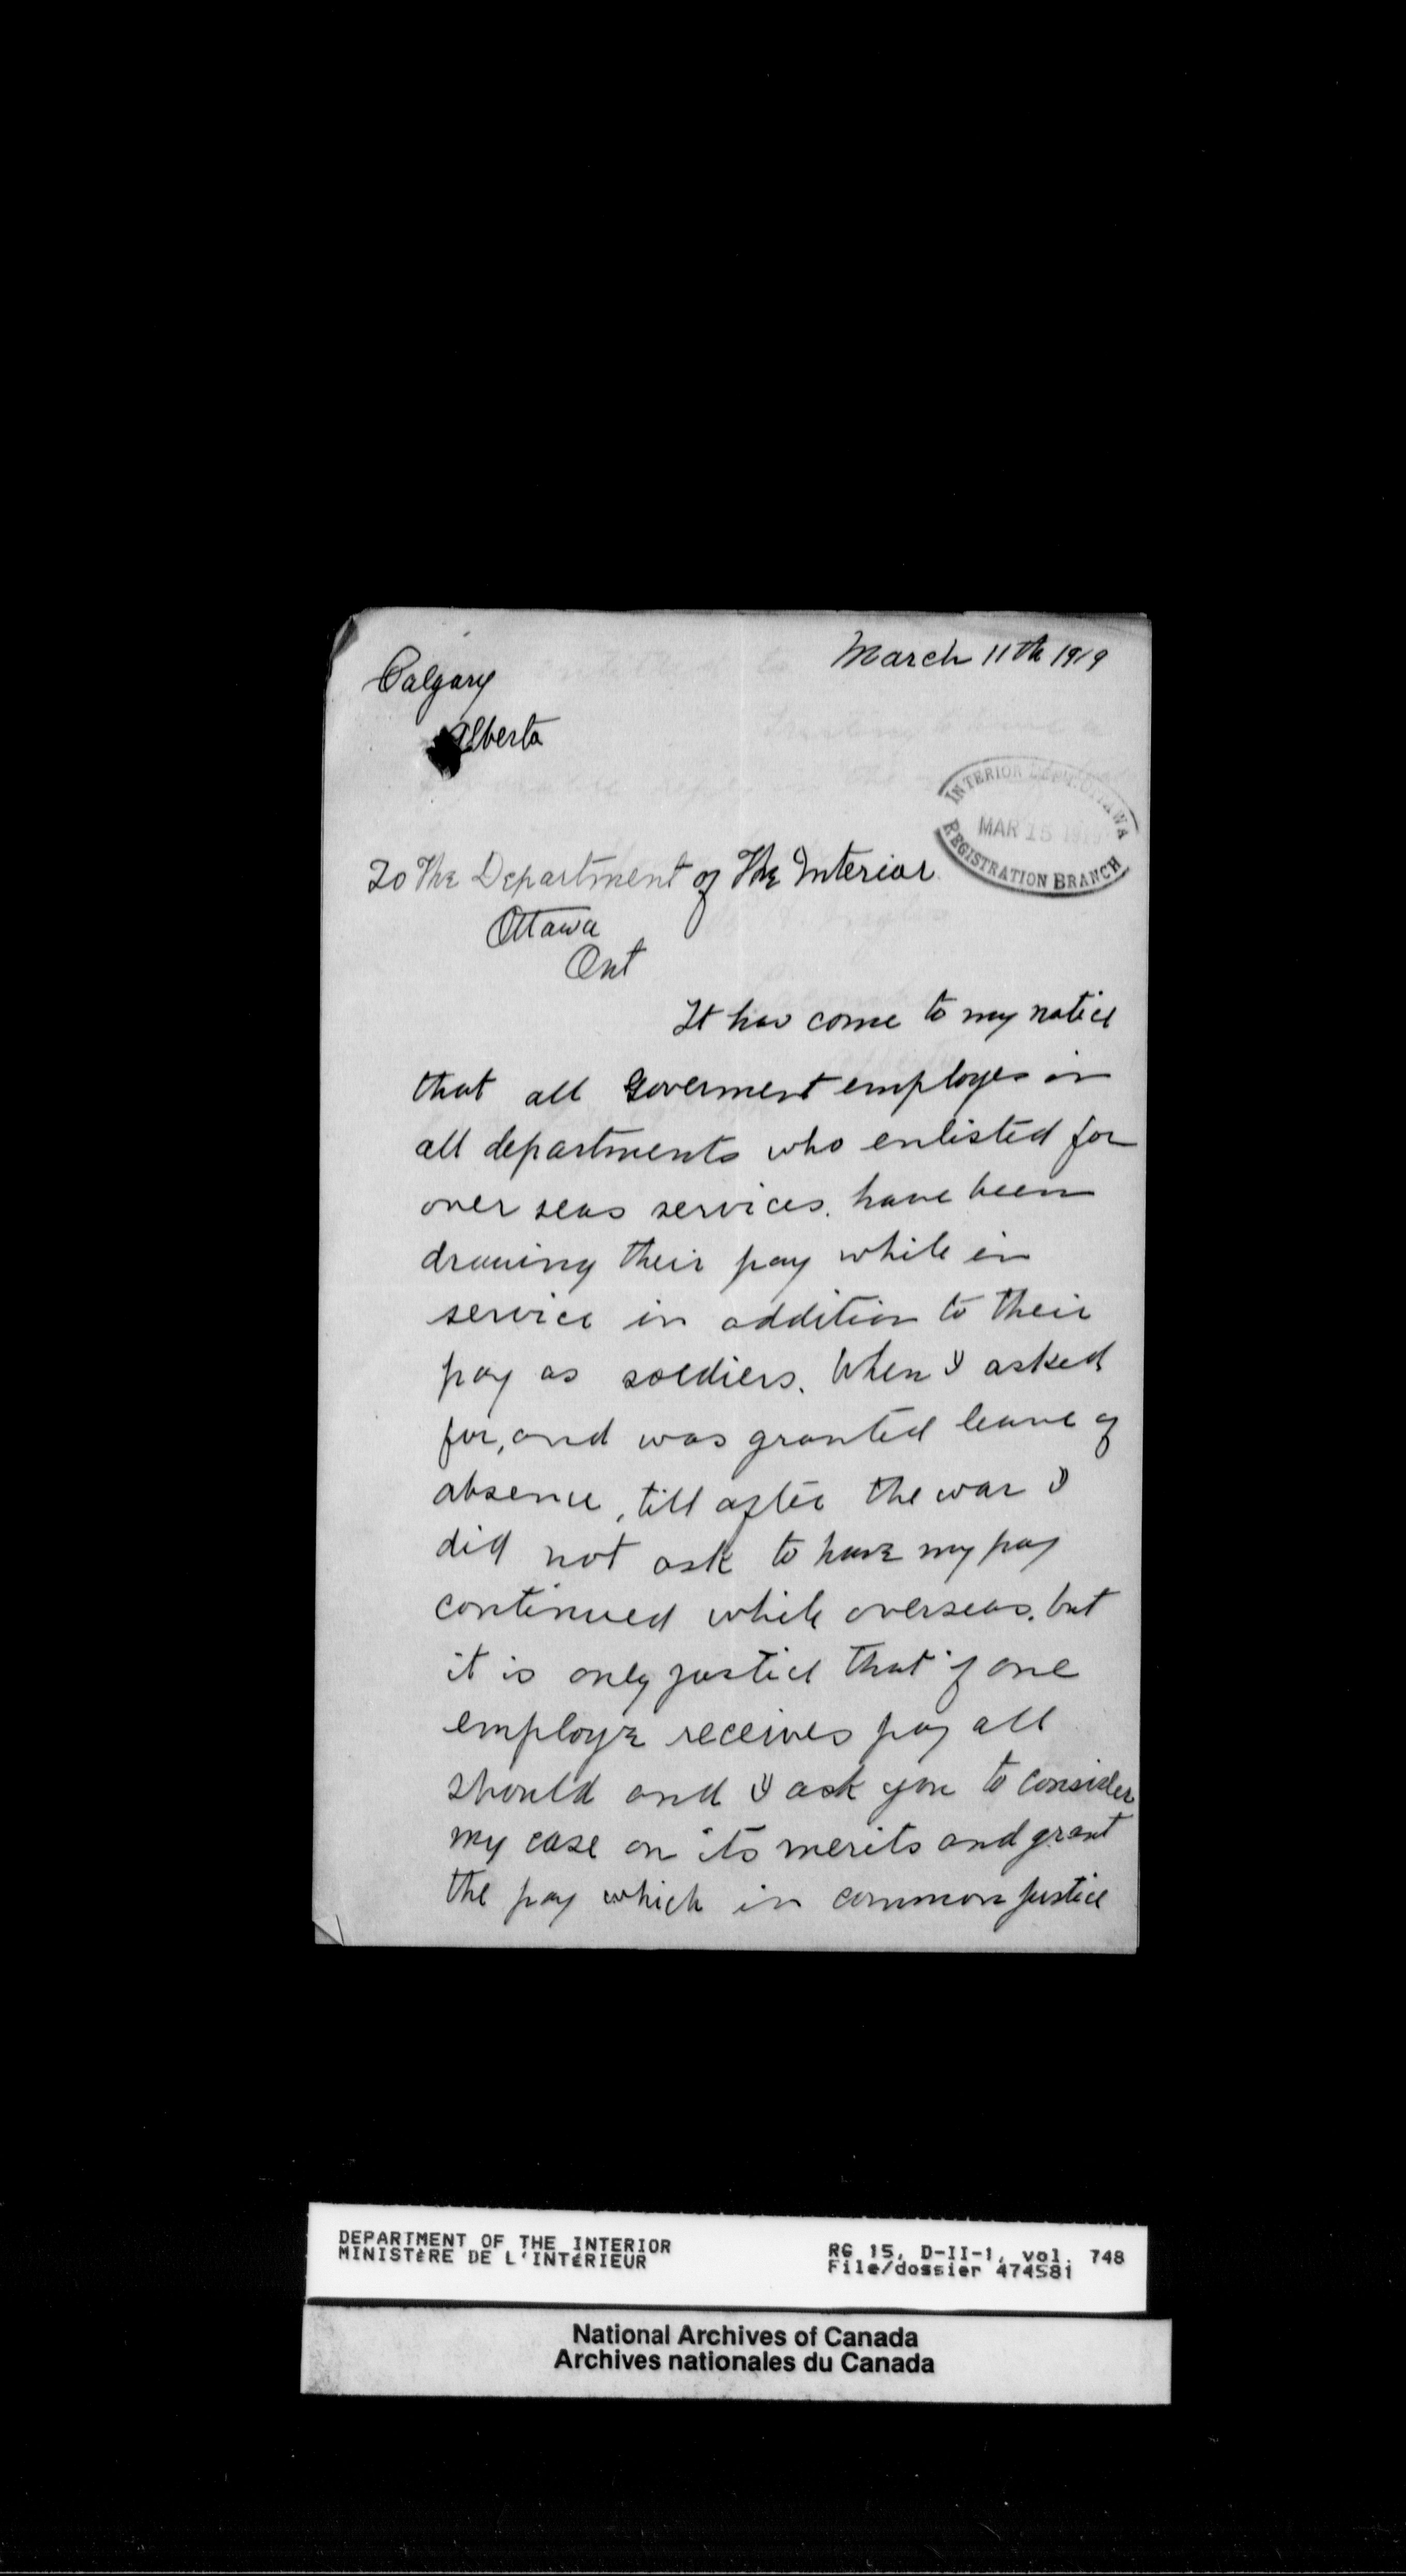 March 11th 1919
Calgary
Alberta
INTERIOR DEPT. OTTAWA
MAR 15 1919
REGISTRATION BRANCH
To The Department of The Interior
Ottawa
Ont
It has come to my notice
that all Goverment employes in
all departments who enlisted for
over seas services. have been
drawing their pay while in
service in addition to their
pay as soldiers. When I asked
for, and was granted leave of
absence, till after the war I
did not ask to have my pay
continued while overseas. but
it is only justice that if one
employe receives pay all
should and I ask you to consider
my case on its merits and grant
the pay which in common justice
DEPARTMENT OF THE INTERIOR
MINISTÈRE DE L'INTÉRIEUR
RG 15, D-II-1, vol. 748
File/dossier 474581
National Archives of Canada
Archives nationales du Canada